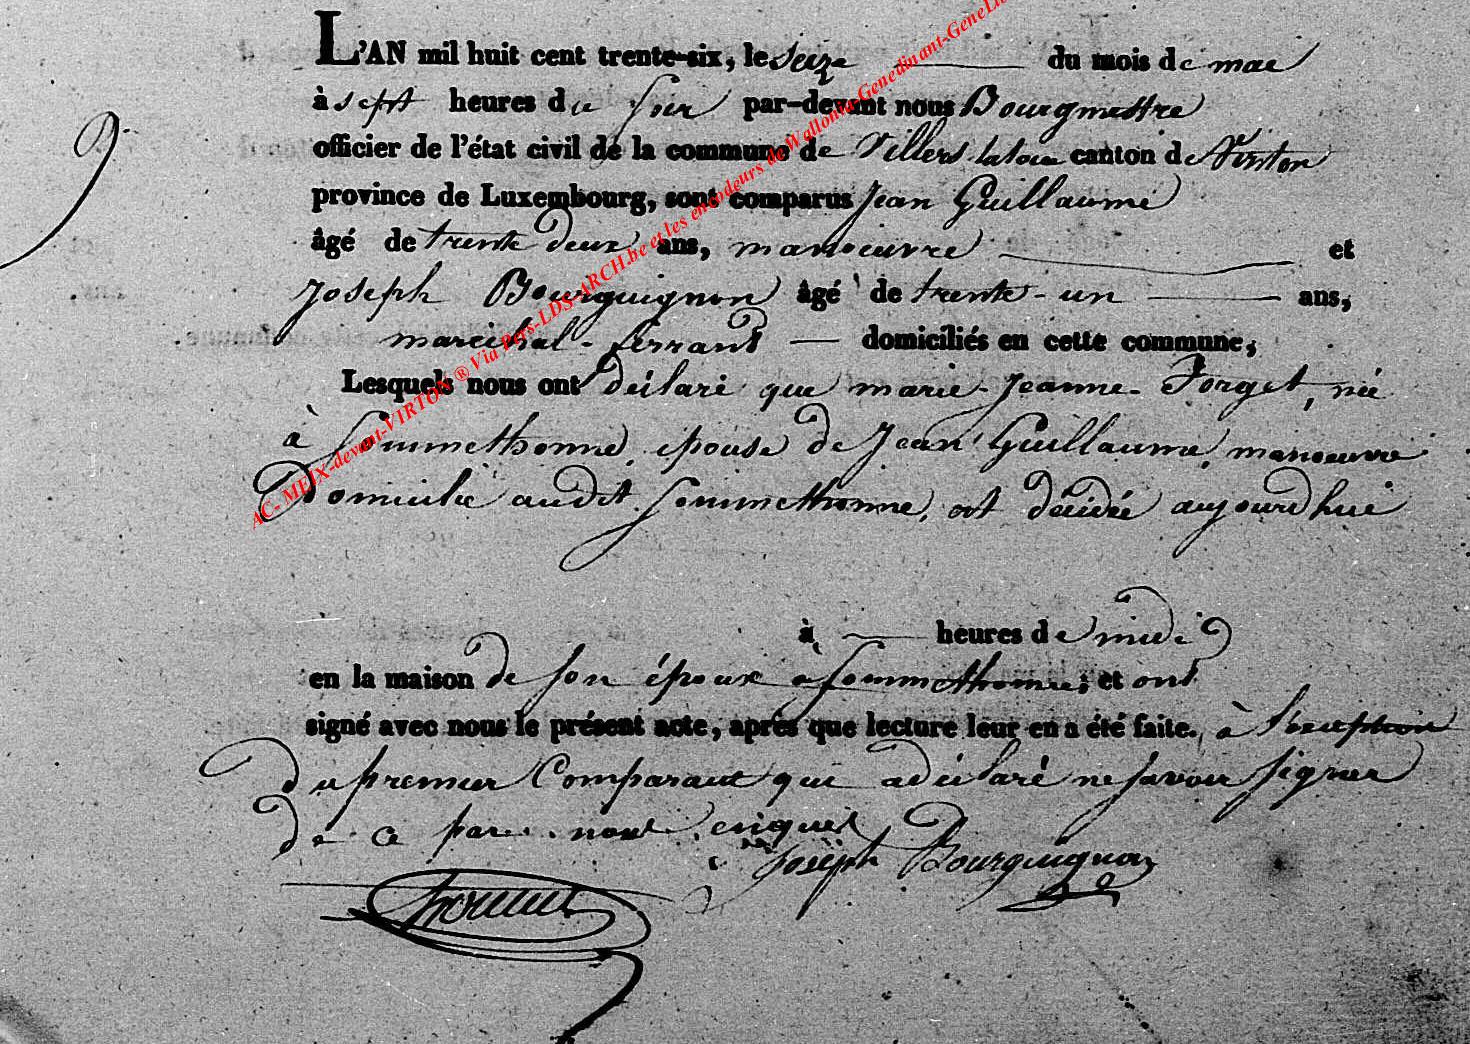 9
L'AN mil huit cent trente-six, le seize du mois de mai
à sept heures du soir par-devant nous Bourgmestre
officier de l'état civil de la commune de Villers-laloue canton de Virton
province de Luxembourg, sont comparus Jean Guillaume
âgé de trente deux ans, manoeuvre et
Joseph Bourguignon âgé de trente-un ans,
marechal-ferrant domiciliés en cette commune;
Lesquels nous ont déclaré que marie-Jeanne-Forget, née
à Sommethonne, épouse de Jean Guillaume, manoeuvre
Domicilié audit Sommethonne, est décidée aujourd'hui
à heures de midi
en la maison de son époux à Sommethonne; et ont
signé avec nous le présent acte, après que lecture leur en a été faite. à l'exception
du premier Comparant qui a déclaré ne savoir signer
De ce par nous enquis
Joseph Bourguignon
AC- MEIX-devant-VIRTON ® Via Pers-LDS-ARCH.be et les encodeurs de Wallonia-Genedinant-GeneLi